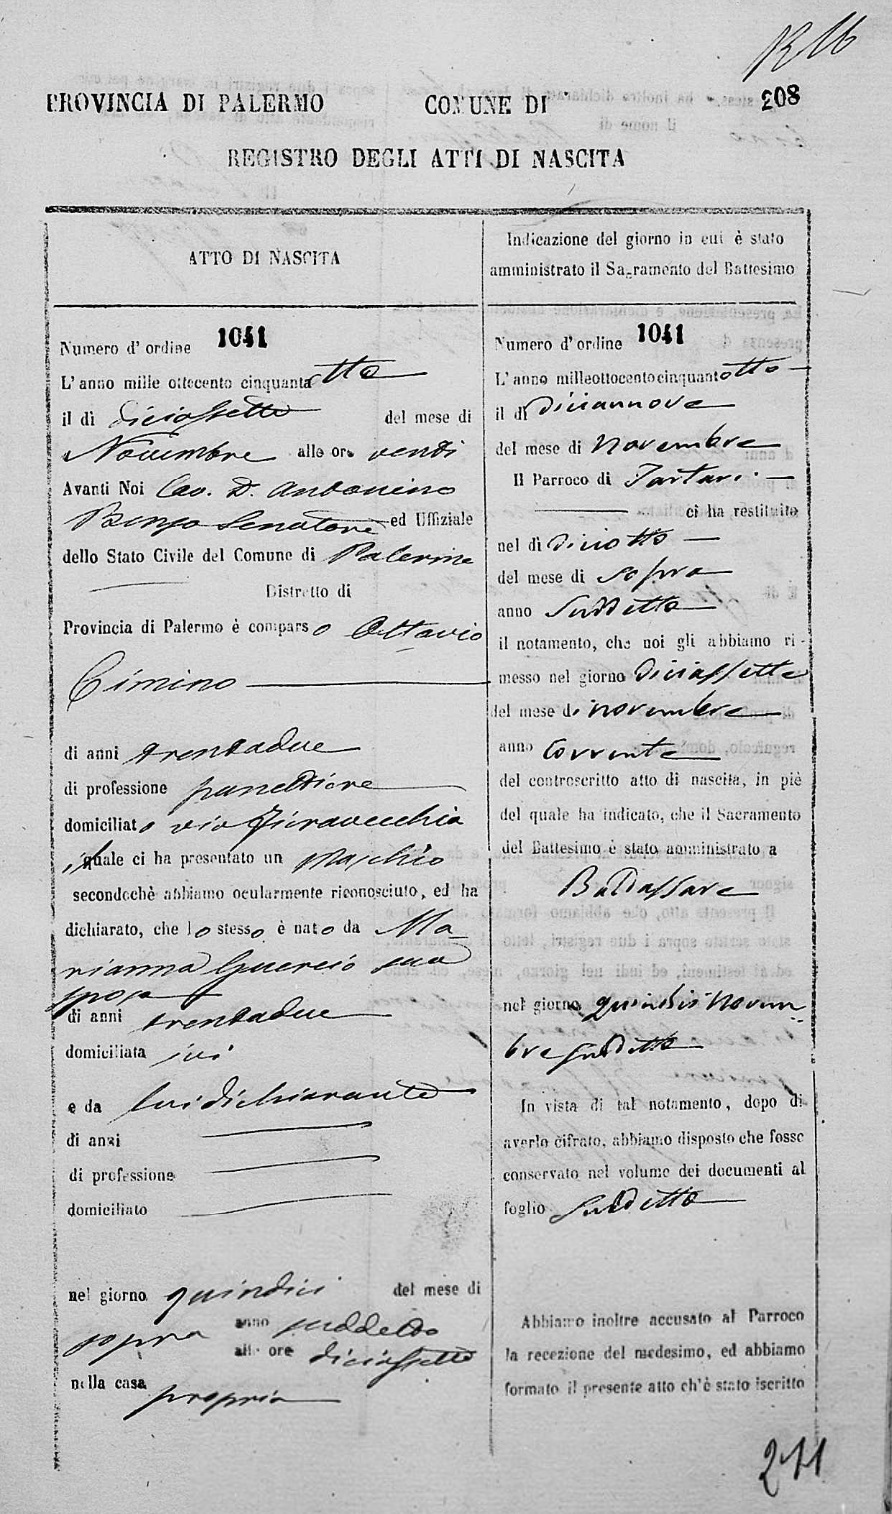 208
PROVINCIA DI PALERMO COMUNE DI
REGISTRO DEGLI ATTI DI NASCITA
ATTO DI NASCITA
Numero d'ordine 1041
L'anno mille ottocento cinquantaotto
il dì diciassette del mese di
Novembre alle ore venti
Avanti Noi Cav. D. Antonino
Senatore ed Uffiziale
dello Stato Civile del Comune di Palermo
Distretto di
Provincia di Palermo è comparso Ottavio
Cimino
di anni trentadue
di professione panettiere
domiciliato via Fieravecchia
il quale ci ha presentato un Maschio
secondochè abbiamo ocularmente riconosciuto, ed ha
dichiarato, che lo stesso è nato da Ma-
rianna Guercio sua
sposa
di anni trentadue
domiciliata ivi
e da lui dichiarante
di anni
di professione
domiciliato
nel giorno quindici del mese di
sopra anno suddetto
alle ore diciassette
nella casa propria
Indicazione del giorno in cui è stato
amministrato il Sacramento del Battesimo
Numero d'ordine 1041
L'anno milleottocentocinquantotto
il dì diciannove
del mese di novembre
Il Parroco di Tartari
ci ha restituito
nel dì diciotto
del mese di sopra
anno suddetto
il notamento, che noi gli abbiamo ri-
messo nel giorno diciassette
del mese di novembre
anno corrente
del controscritto atto di nascita, in piè
del quale ha indicato, che il Sacramento
del Battesimo è stato amministrato a
Baldassare
nel giorno quindici novem-
bre suddetto
In vista di tal notamento, dopo di
averlo cifrato, abbiamo disposto che fosse
conservato nel volume dei documenti al
foglio suddetto
Abbiamo inoltre accusato al Parroco
la recezione del medesimo, ed abbiamo
formato il presente atto ch'è stato iscritto
211